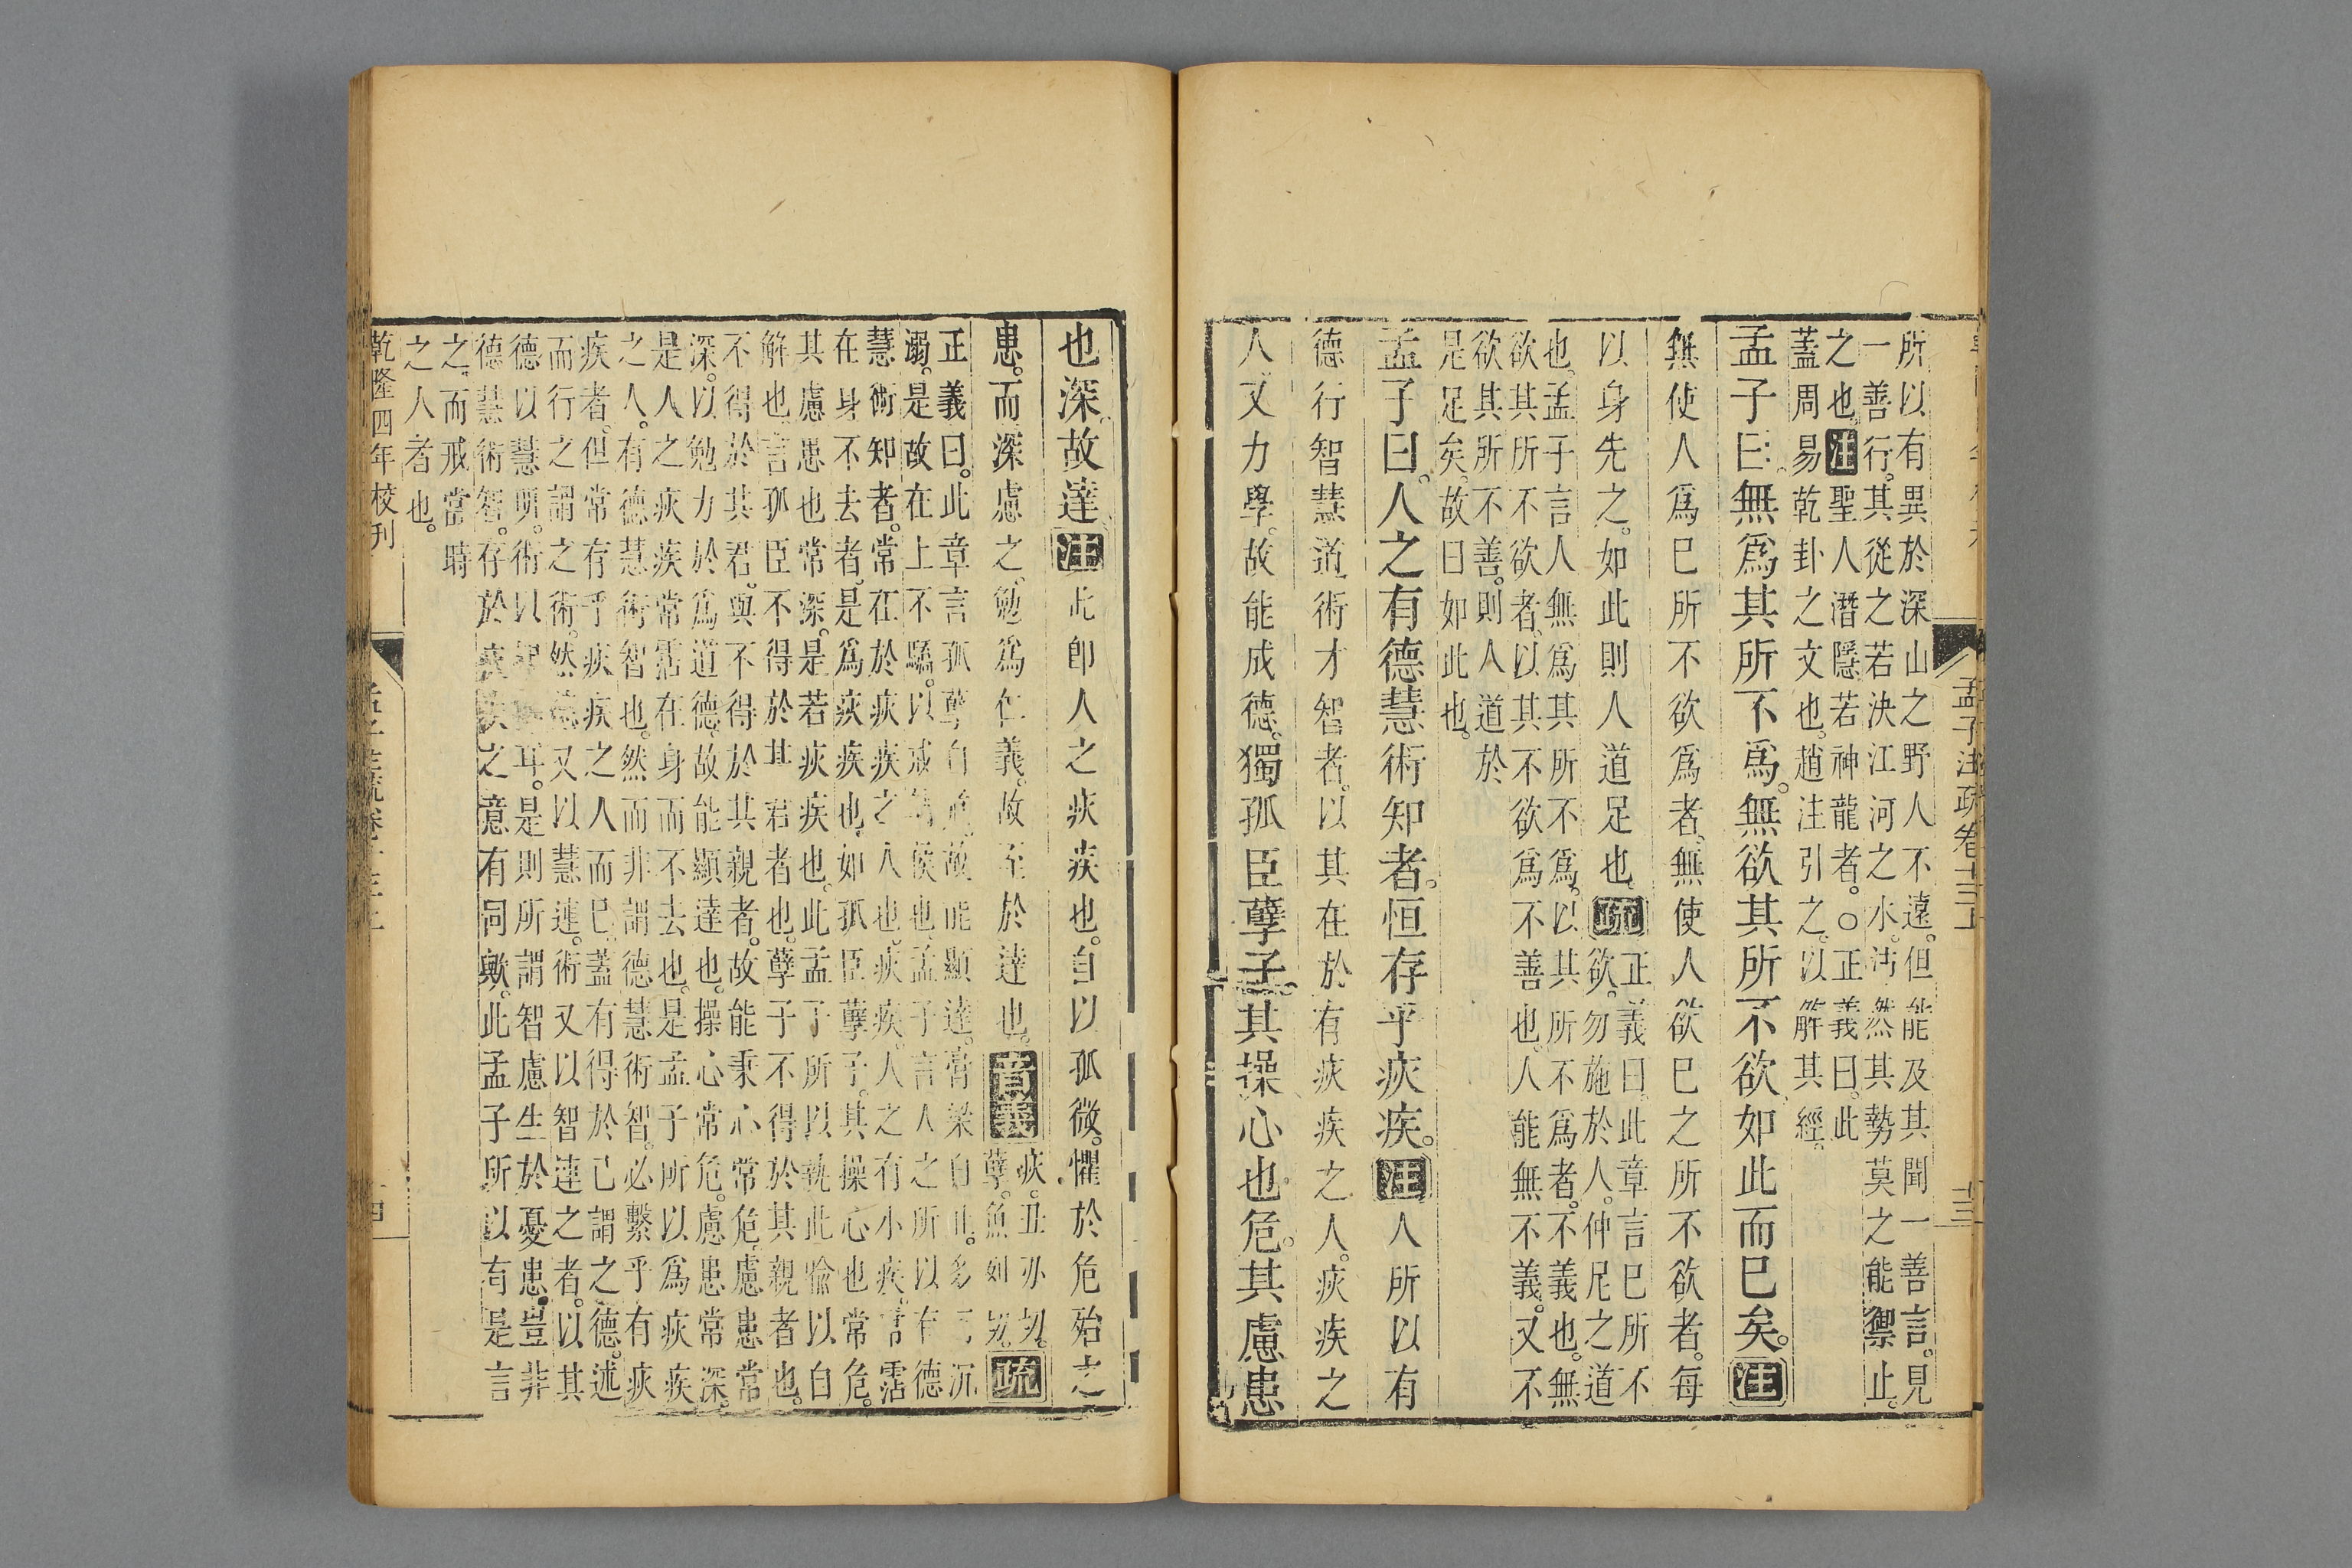 所以有異於深山之野人不遠。但能及其聞一善言。見
一善行。其從之若決江河之水。沛然其勢莫之能禦止。
之也。注聖人潛隱若神龍者。○正義曰。此
蓋周易乾卦之文也。趙注引之。以解其經。
孟子曰。無爲其所不爲。無欲其所不欲。如此而已矣。注
無使人爲已所不欲爲者。無使人欲已之所不欲者。每
以身先之。如此則人道足也。疏正義曰。此章言已所不
欲。勿施於人。仲尼之道
也。孟子言人無爲其所不爲。以其所不爲者。不義也。無
欲其所不欲者。以其不欲爲不善也。人能無不義。又不
欲其所不善。則人道於
是足矣。故曰如此也。
孟子曰。人之有德慧術知者。恒存乎疢疾。注人所以有
德行智慧道術才智者。以其在於有疢疾之人。疢疾之
人又力學。故能成德。獨孤臣孽子其操心也危。其慮患
孟子注疏卷十三上
十三
也深。故達。注此卽人之疢疾也。自以孤微。懼於危殆之
患。而深慮之。勉爲仁義。故至於達也。音義疢。丑刃切。
孽。魚列切。疏
正義曰。此章言孤孽自危。故能顯達。膏粱自正。多已沉
溺。是故在上不驕。以戒諸侯也。孟子言人之所以有德
慧術知者。常在於疢疾之人也。疢疾。人之有小疾。言霑
在身不去者。是爲疢疾也。如孤臣孽子。其操心也常危。
其慮患也常深。是若疢疾也。此孟子所以執此喻以自
解也。言孤臣不得於其君者也。孽子不得於其親者也。
不得於其君。與不得於其親者。故能秉心常危。慮患常
深。以勉力於爲道德。故能顯達也。操心常危。慮患常深。
是人之疢疾常霑在身而不去也。是孟子所以爲疢疾
之人。有德慧術智也。然而非謂德慧術智。必繫乎有疢
疾者。但常存乎疢疾之人而巳。蓋有得於已謂之德。述
而行之謂之術。然德又以慧連。術又以智連之者。以其
德以慧明。術以智耳。是則所謂智慮生於憂患。豈非
德慧術智。存於疢疾之意有同歟。此孟子所以有是言
之。而戒當時
之人者也。
乾隆四年校刊
孟子注疏卷十三上
十四